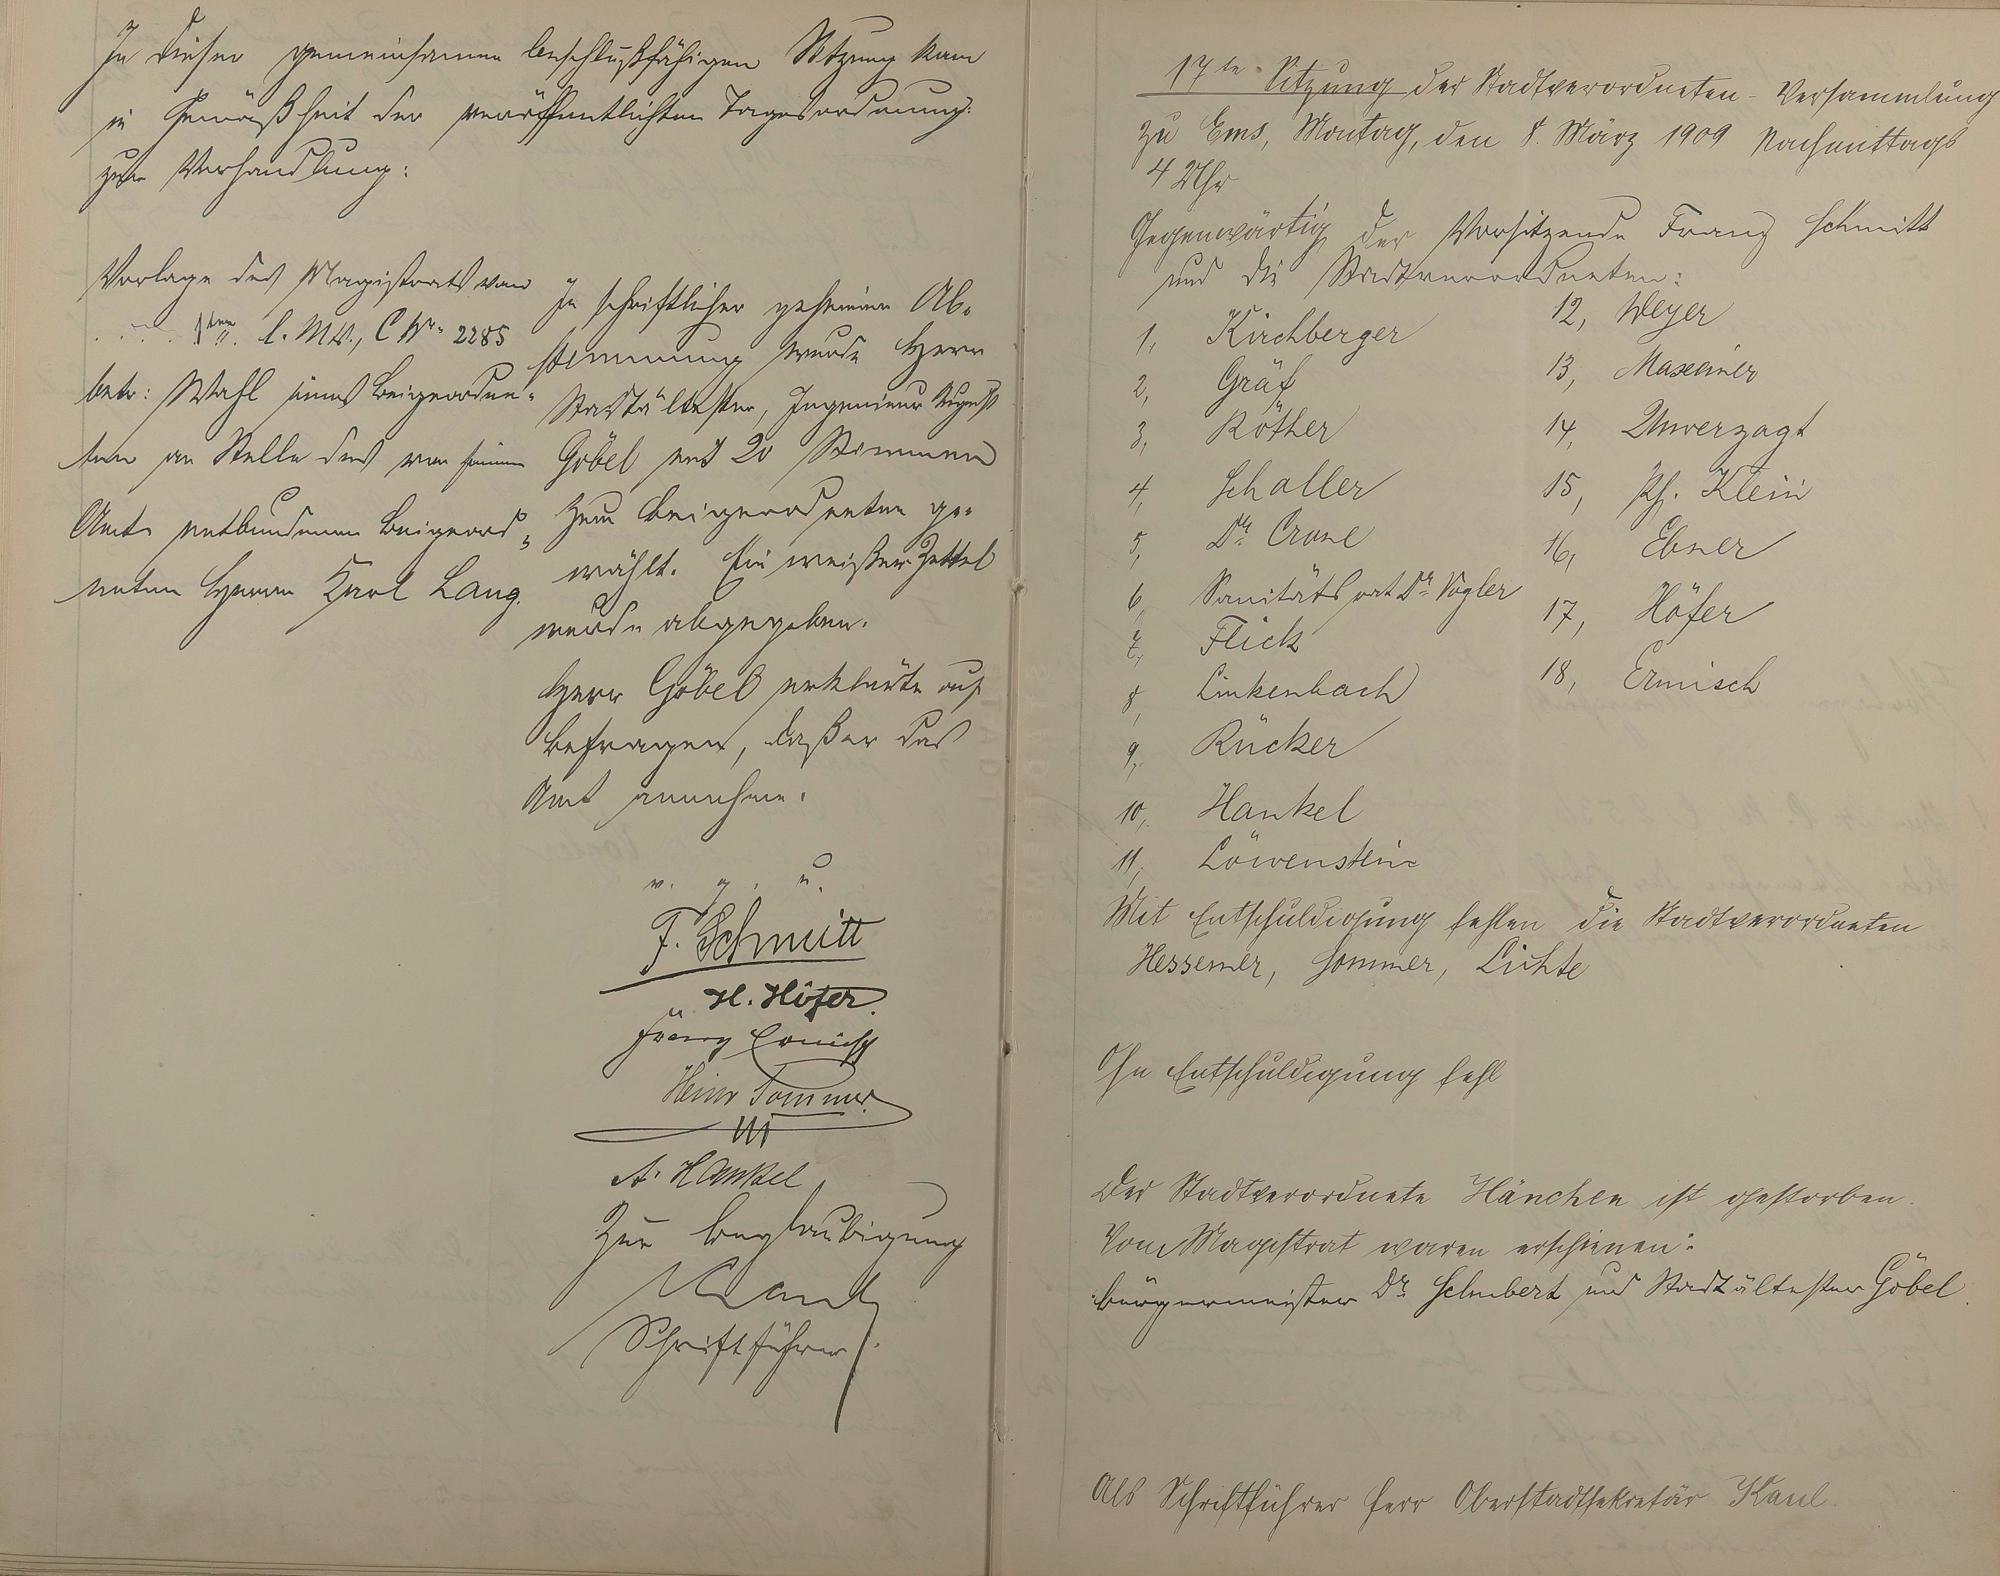 In dieser gemeinsamen beschlußfähigen Sitzung kam
in Gemäßheit der veröffentlichten Tagesordnung
zur Verhandlung:
Vorlage des Magistrats vom
1ten l. Mts., C Nr. 2285
betr: Wahl eines Beigeordne-
ten an Stelle des von seinem
Amte entbundenen Beigeord-
neten Herrn Karl Lang.
In schriftlicher geheimer Ab-
stimmung wurde Herr
Stadtältester, Ingenieur August
Göbel mit 20 Stimmen
zum Beigeordneten ge-
wählt. Ein weißer Zettel
wurde abgegeben.
Herr Göbel erklärte auf
Befragen, daß er das
Amt annehme.
v. g. u.
F. Schmitt
H. Höfer
Franz Ermisch
Heinr Sommer
A. Hankel
Zur Beglaubigung
Kaul
Schriftführer.
17te Sitzung der Stadtverordneten-Versammlung
zu Ems, Montag, den 8. März 1909 Nachmittags
4 Uhr
Gegenwärtig der Vorsitzende Franz Schmitt
und die Stadtverordneten:
1, Kirchberger
2, Gräf
3, Röther
4, Schaller
5, Dr. Crone
6, Sanitätsrat Dr. Vogler
7, Flick
8, Linkenbach
9, Rücker
10, Hankel
11, Löwenstein
12, Weyer
13, Maxeiner
14, Unverzagt
15, Ph. Klein
16, Ebner
17, Höfer
18, Ermisch
Mit Entschuldigung fehlen die Stadtverordneten
Hessemer, Sommer, Lichte
Ohn Entschuldigung fehl
Der Stadtverordnete Hänchen ist gestorben.
Vom Magistrat waren erschienen:
Bürgermeister Dr. Schubert und Stadtältester Göbel.
Als Schriftführer Herr Oberstadtsekretär Kaul.